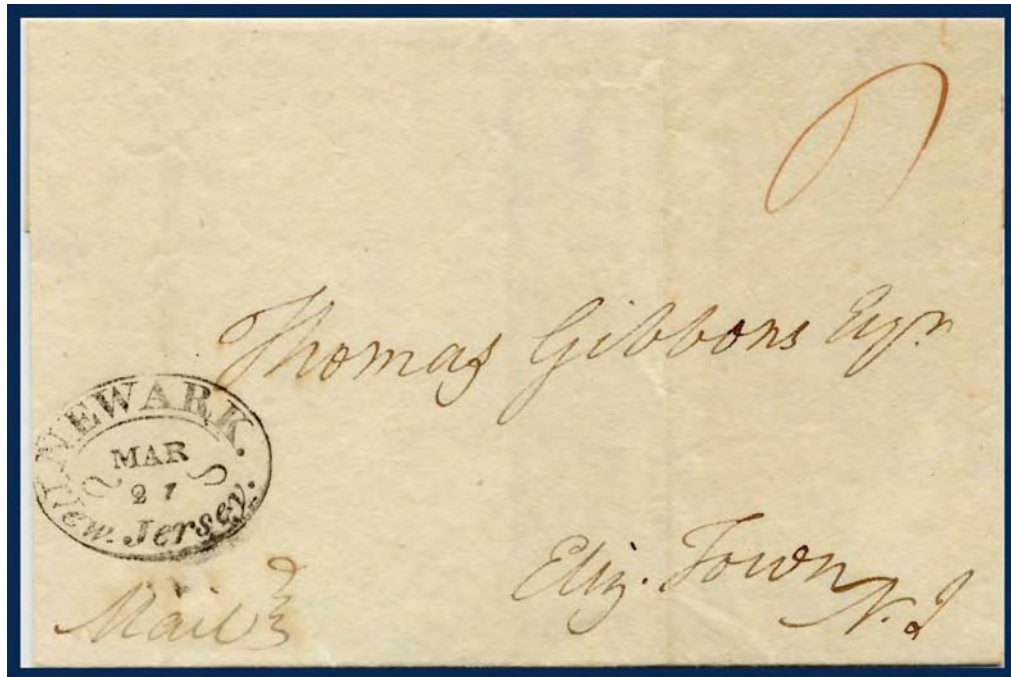 Thomas Gibbons Esqr
NEWARK.
MAR
27
New. Jersey.
Eliz. Town
N. J
Mail